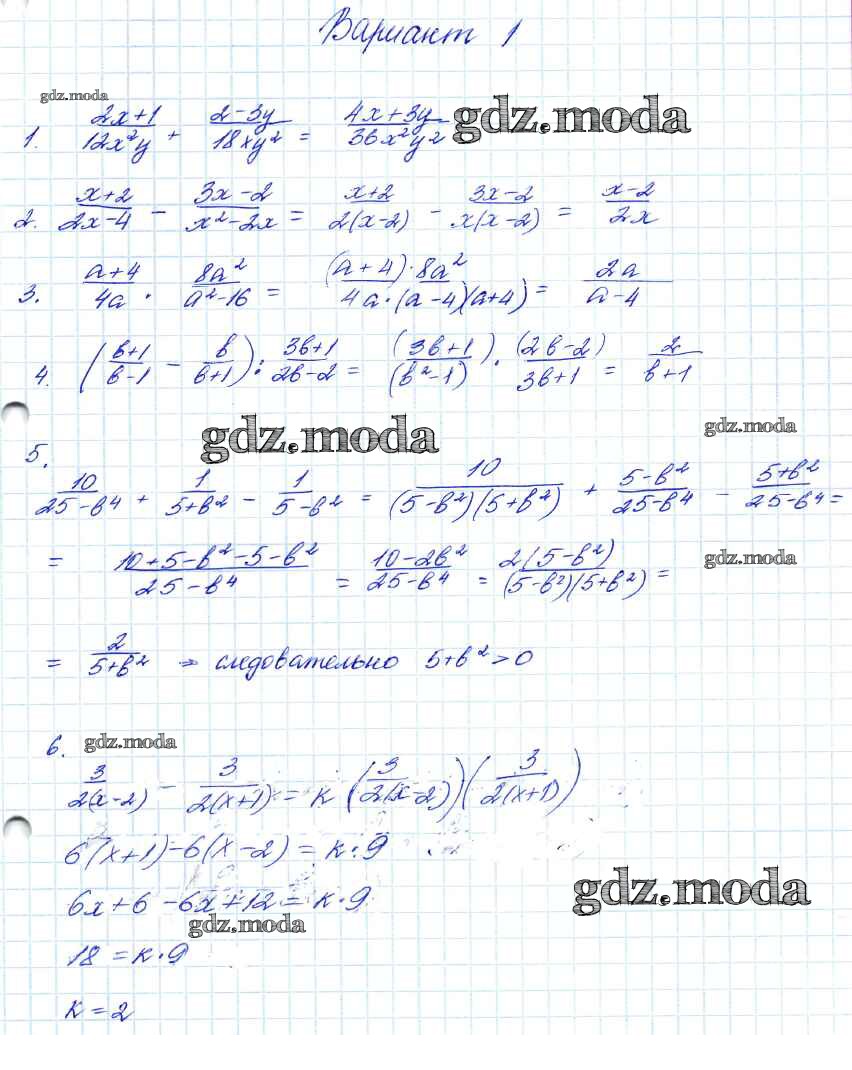 Вариант 1
gdz.moda
1. (2x+1)/(12x²y) + (2-3y)/(18xy²) = (4x+3y)/(36x²y²) gdz.moda
2. (x+2)/(2x-4) - (3x-2)/(x²-2x) = (x+2)/(2(x-2)) - (3x-2)/(x(x-2)) = (x-2)/(2x)
3. (a+4)/(4a) · (8a²)/(a²-16) = ((a+4)·8a²)/(4a·(a-4)(a+4)) = (2a)/(a-4)
4. ((b+1)/(b-1) - b/(b+1)) : (3b+1)/(2b-2) = ((3b+1)/(b²-1)) · (2b-2)/(3b+1) = 2/(b+1)
gdz.moda gdz.moda
5.
10/(25-b⁴) + 1/(5+b²) - 1/(5-b²) = 10/((5-b²)(5+b²)) + (5-b²)/(25-b⁴) - (5+b²)/(25-b⁴) =
= (10+5-b²-5-b²)/(25-b⁴) = (10-2b²)/(25-b⁴) = (2(5-b²))/((5-b²)(5+b²)) = gdz.moda
= 2/(5+b²) ⇒ следовательно 5+b²>0
6. gdz.moda
3/(2(x-2)) - 3/(2(x+1)) = k (3/(2(x-2))) (3/(2(x+1)))
6(x+1)-6(x-2) = k·9
gdz.moda
6x+6-6x+12 = k·9
gdz.moda
18 = k·9
k = 2